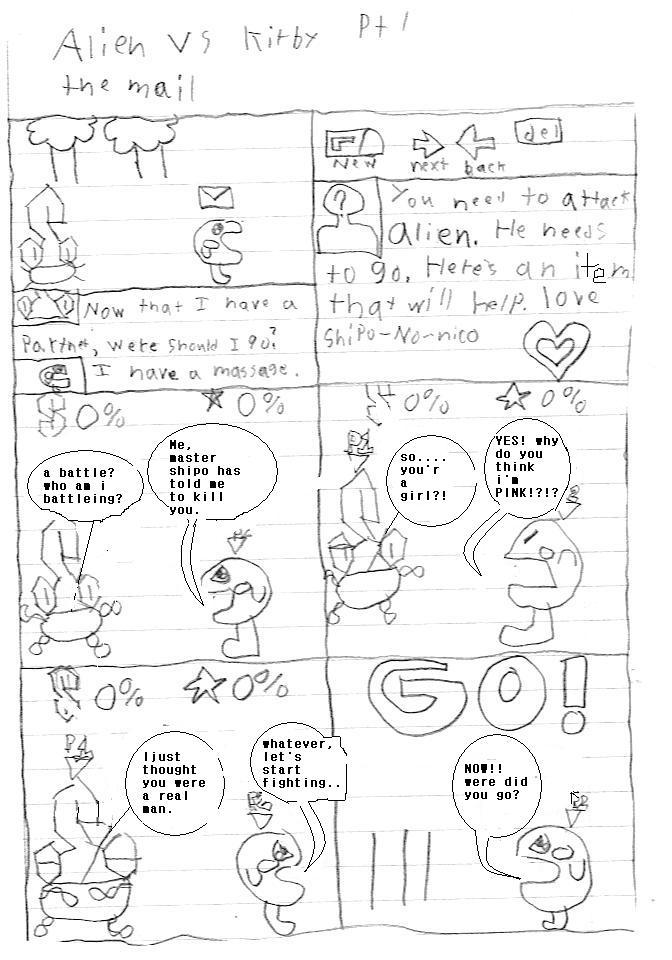 Alien vs Kirby Pt 1
the mail
Now that I have a
Partner, were should I go?
I have a massage.
New next back del
?
You need to attack
alien. He needs
to go. Here's an item
that will help. love
Shipo-No-nico
0% 0%
a battle?
who am i
battleing?
Me,
master
shipo has
told me
to kill
you.
P2
0% 0%
P1
so....
you'r
a
girl?!
YES! why
do you
think
i'm
PINK!?!?
0% 0%
P1
Ijust
thought
you were
a real
man.
whatever,
let's
start
fighting..
P2
GO!
NOW!!
were did
you go?
P2